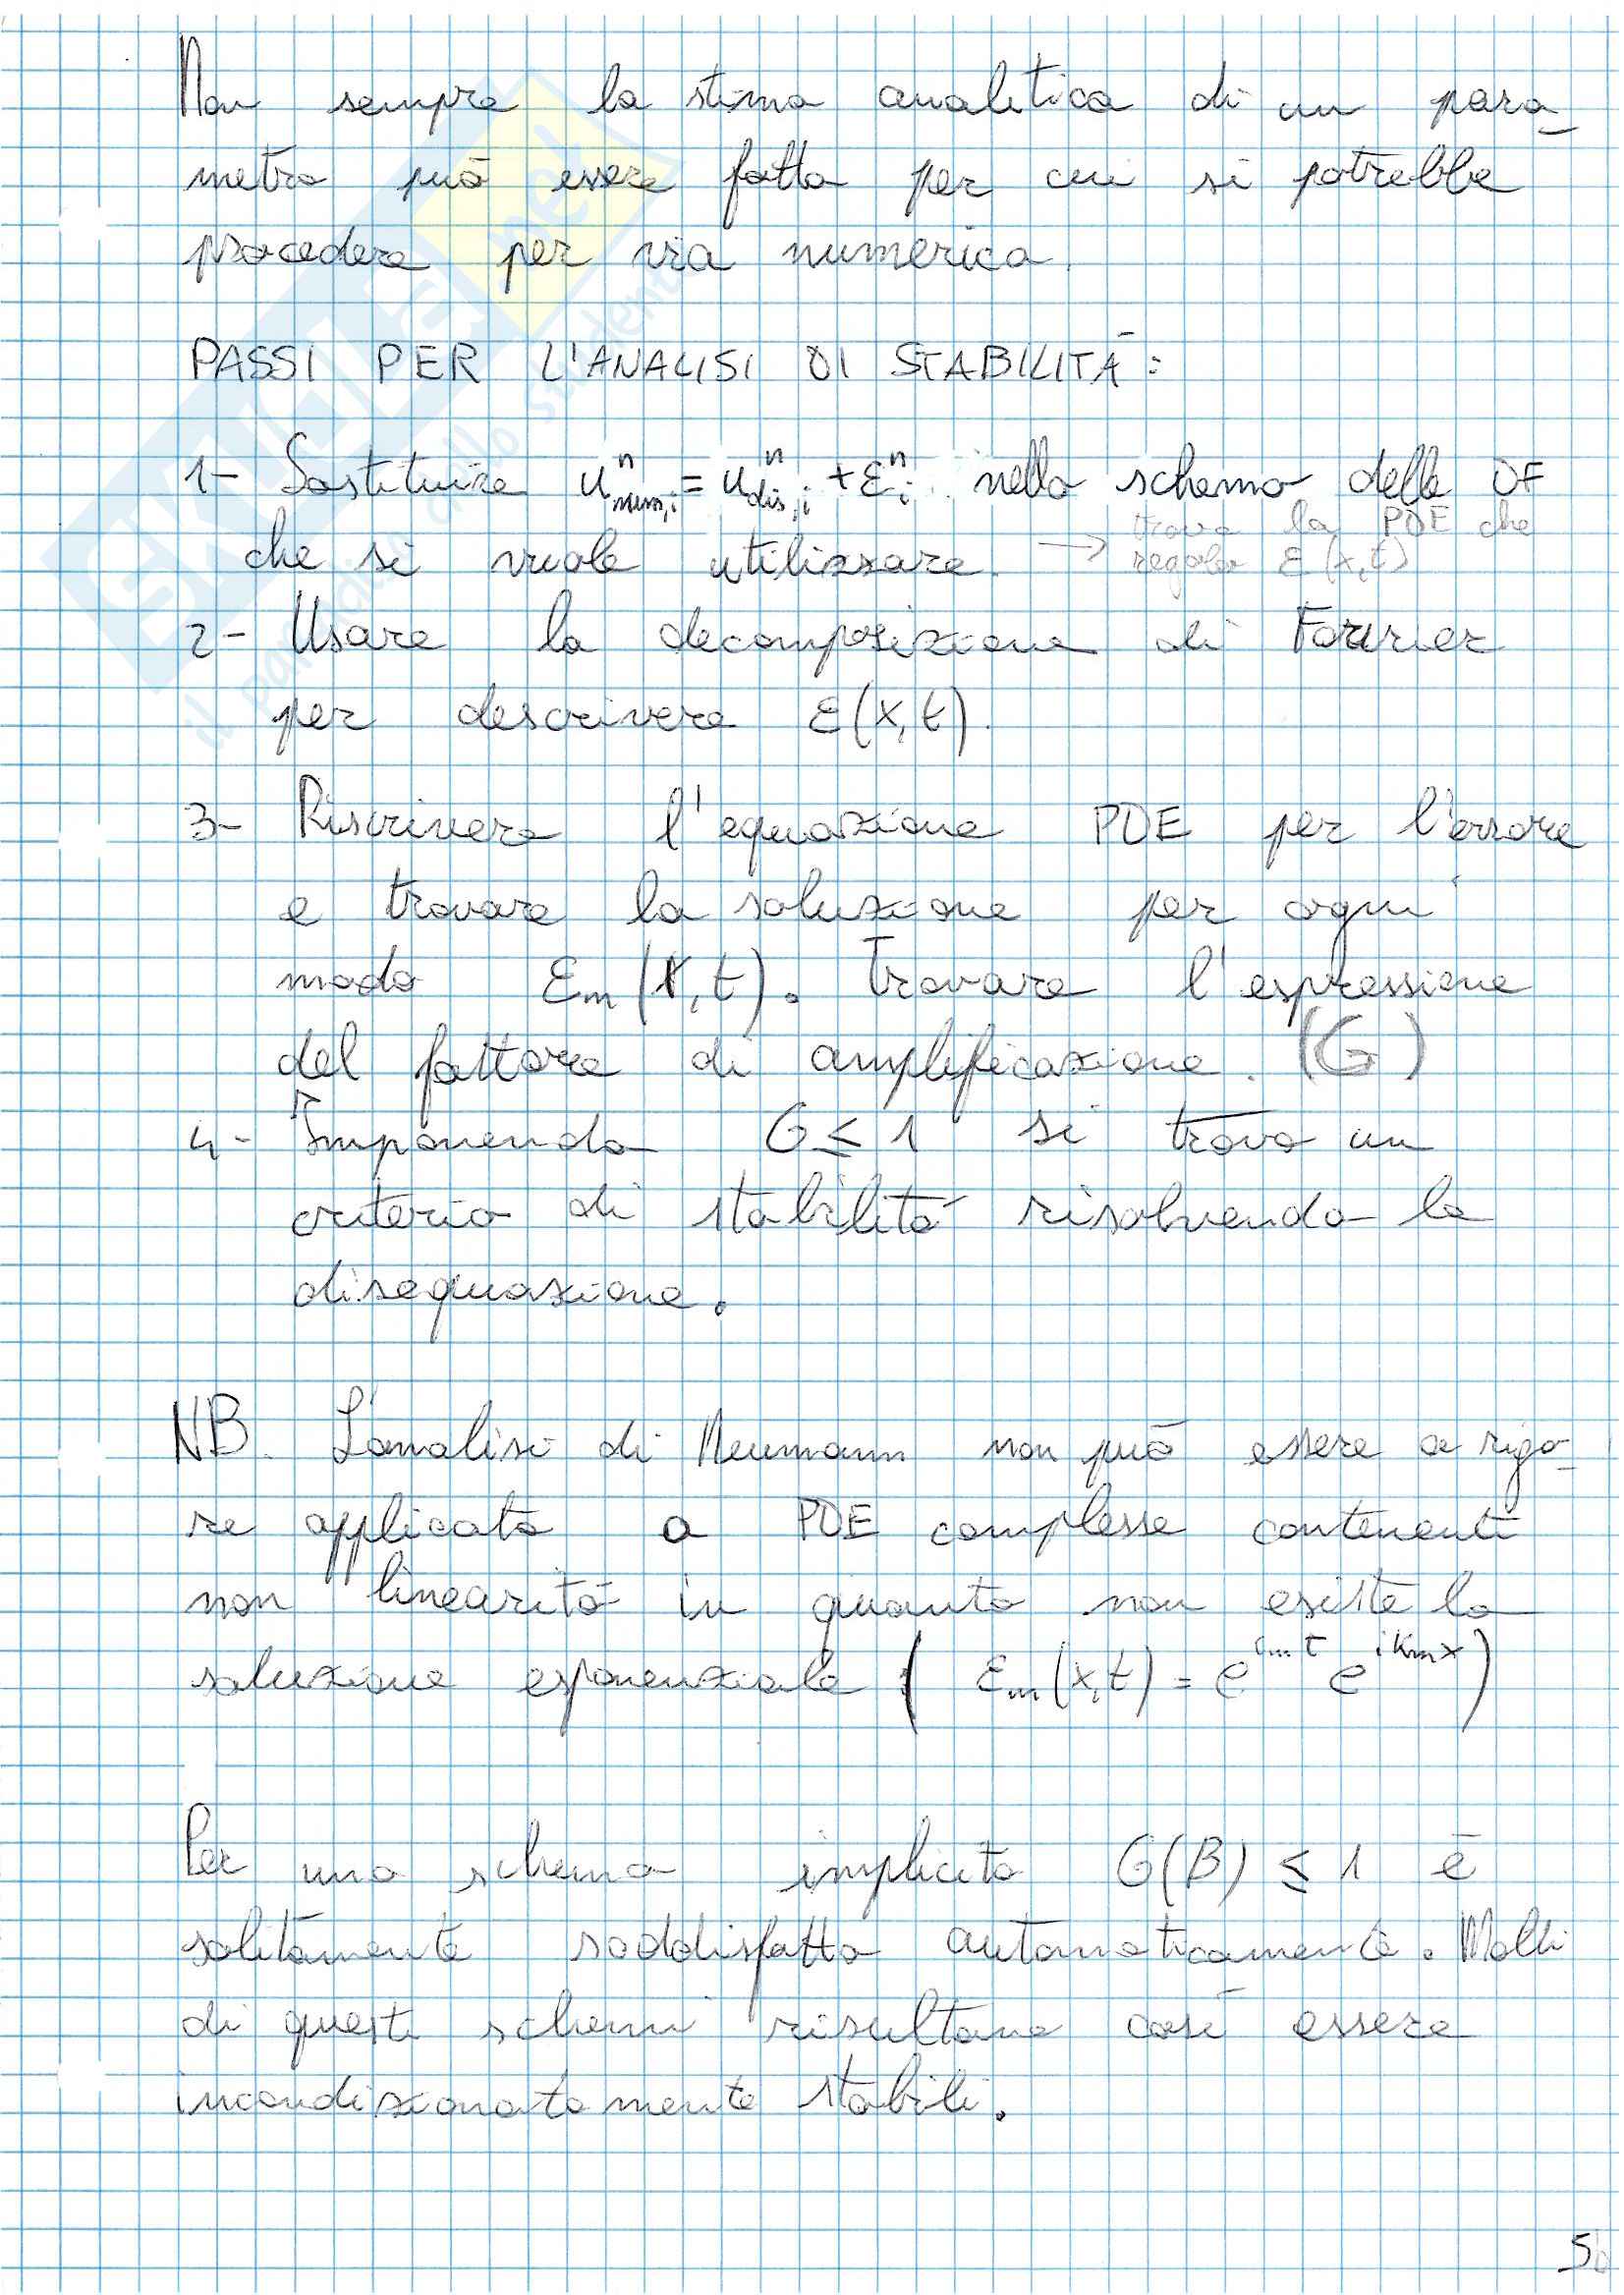 Non sempre la stima analitica di un para-
metro può essere fatta per cui si potrebbe
procedere per via numerica.
PASSI PER L'ANALISI DI STABILITÀ:
1- Sostituire u^n_{num,i} = u^n_{dis,i} + ε^n_i nello schema delle DF
trova la PDE che
che si vuole utilizzare. → regola ε(x,t)
2- Usare la decomposizione di Fourier
per descrivere ε(x,t).
3- Riscrivere l'equazione PDE per l'errore
e trovare la soluzione per ogni
modo ε_m(x,t). Trovare l'espressione
del fattore di amplificazione. (G)
4- Imponendo G ≤ 1 si trova un
criterio di stabilità risolvendo la
disequazione.
NB. L'analisi di Neumann non può essere a rigo-
re applicata a PDE complesse contenenti
non linearità in quanto non esiste la
soluzione esponenziale ( ε_m(x,t) = e^{i...t} e^{ik_m x} )
Per uno schema implicito G(β) ≤ 1 è
solitamente soddisfatto automaticamente. Molti
di questi schemi risultano così essere
incondizionatamente stabili.
SKUOLA.net
il paradiso dello studente